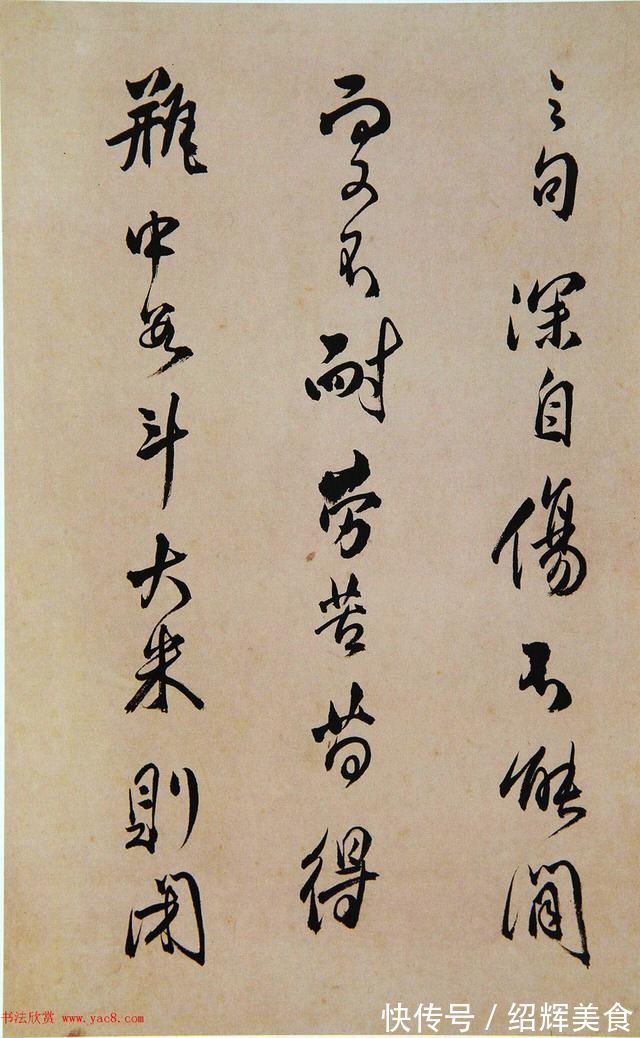 之句深自傷不能澗
而又不耐勞苦苟得
瓶中斗大米則閉
书法欣赏 www.yac8.com
快传号/绍辉美食